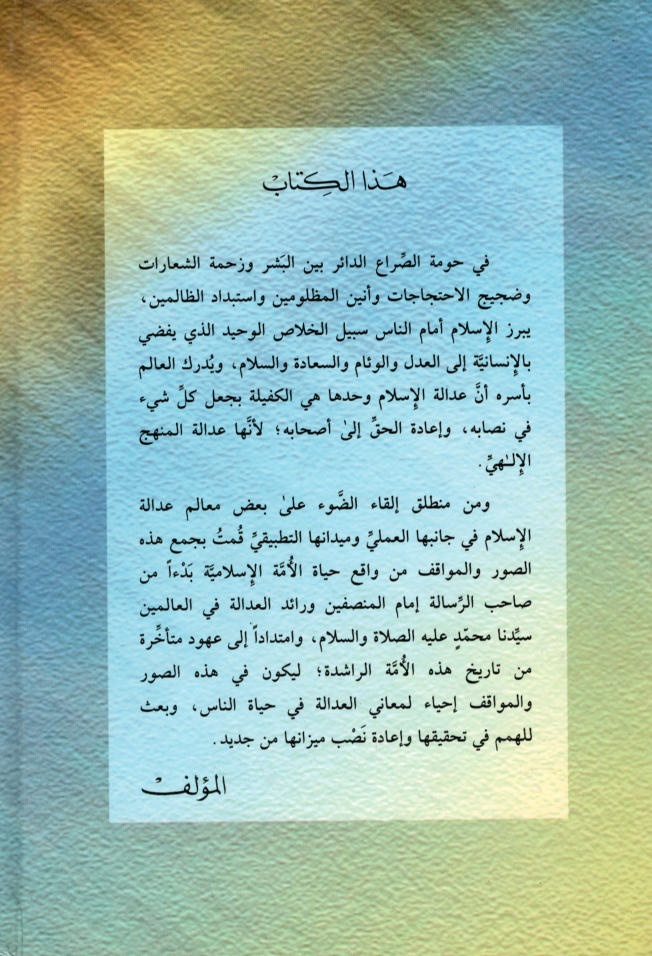 هَذا الكِتابْ
في حومة الصِّراع الدائر بين البَشر وزحمة الشعارات
وضجيج الاحتجاجات وأنين المظلومين واستبداد الظالمين،
يبرز الإِسلام أمام الناس سبيل الخلاص الوحيد الذي يفضي
بالإِنسانيَّة إلى العدل والوئام والسعادة والسلام، ويُدرك العالم
بأسره أنَّ عدالة الإِسلام وحدها هي الكفيلة بجعل كلِّ شيء
في نصابه، وإعادة الحقِّ إلىٰ أصحابه؛ لأنَّها عدالة المنهج
الإِلـٰهيِّ.
ومن منطلق إلقاء الضَّوء علىٰ بعض معالم عدالة
الإِسلام في جانبها العمليِّ وميدانها التطبيقيِّ قُمتُ بجمع هذه
الصور والمواقف من واقع حياة الأُمَّة الإِسلاميَّة بَدْءاً من
صاحب الرِّسالة إمام المنصفين ورائد العدالة في العالمين
سيِّدنا محمّدٍ عليه الصلاة والسلام، وامتداداً إلى عهود متأخِّرة
من تاريخ هذه الأُمَّة الراشدة؛ ليكون في هذه الصور
والمواقف إحياء لمعاني العدالة في حياة الناس، وبعث
للهمم في تحقيقها وإعادة نَصْب ميزانها من جديد.
المؤلفْ